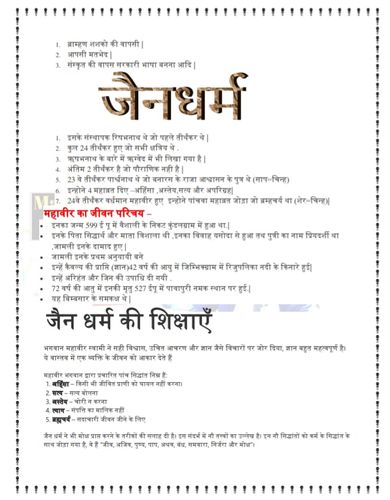 1. ब्राम्हण शशको की वापसी |
2. आपसी मतभेद |
3. संस्कृत की वापस सरकारी भाषा बनना आदि |
जैनधर्म
1. इसके संस्थापक रिषभनाथ थे जो पहले तीर्थंकर थे |
2. कुल 24 तीर्थंकर हुए जो सभी क्षत्रिय थे .
3. ऋषभनाथ के बारे में ऋग्वेद में भी लिखा गया है |
4. अंतिम 2 तीर्थंकर है जो पौराणिक नही है |
5. 23 वे तीर्थंकर पार्श्वनाथ थे जो बनारस के राजा आश्वसन के पुत्र थे (साप-चिन्ह)
6. इन्होने 4 महाव्रत दिए –अहिंसा ,अस्तेय,सत्य और अपरिग्रह|
7. 24वे तीर्थंकर वर्धमान महावीर हुए इन्होने पांचवा महाव्रत जोड़ा जो ब्रम्हचर्य था |(शेर-चिन्ह)|
महावीर का जीवन परिचय –
• इनका जन्म 599 ई पू में वैशाली के निकट कुंडलग्राम में हुआ था.|
• इनके पिता सिद्धार्थ और माता त्रिशाला थी .इनका विवाह यसोदा से हुआ तथ पुत्री का नाम प्रियदर्शी था ,जामली इनके दामाद हुए |
• जामली इनके प्रथम अनुयायी बने
• इन्हें कैवल्य की प्राप्ति (ज्ञान)42 वर्ष की आयु में जिम्भिक्ग्राम में रिजुपलिका नदी के किनारे हुई|
• इन्हें अरिहंत और जिन की उपाधि दी गयी .
• 72 वर्ष की आतु में इनकी मृतु 527 ईपू में पावापुरी नमक स्थान पर हुई.|
• यह बिम्बसार के समकक्ष थे |
जैन धर्म की शिक्षाएँ
भगवान महावीर स्वामी ने सही विश्वास, उचित आचरण और ज्ञान जैसे विचारों पर जोर दिया, ज्ञान बहुत महत्वपूर्ण है।
ये वास्तव में एक व्यक्ति के जीवन को आकार देते हैं
महावीर भगवान द्वारा प्रचारित पांच सिद्धांत निम्न हैं:
1. अहिंसा – किसी भी जीवित प्राणी को घायल नहीं करना।
2. सत्य – सत्य बोलना
3. अस्तेय – चोरी न करना
4. त्याग – संपत्ति का मालिक नहीं
5. ब्रह्मचर्य – सदाचारी जीवन जीने के लिए
जैन धर्म ने भी मोक्ष प्राप्त करने के तरीकों की सलाह दी है। इस संदर्भ में नौ तत्त्वों का उल्लेख है। इन नौ सिद्धांतों को कर्म के सिद्धांत के
साथ जोड़ा गया है, ये हैं "जीव, अजिव, पुण्य, पाप, अश्रव, बंध, समवारा, निर्जरा और मोक्ष"।